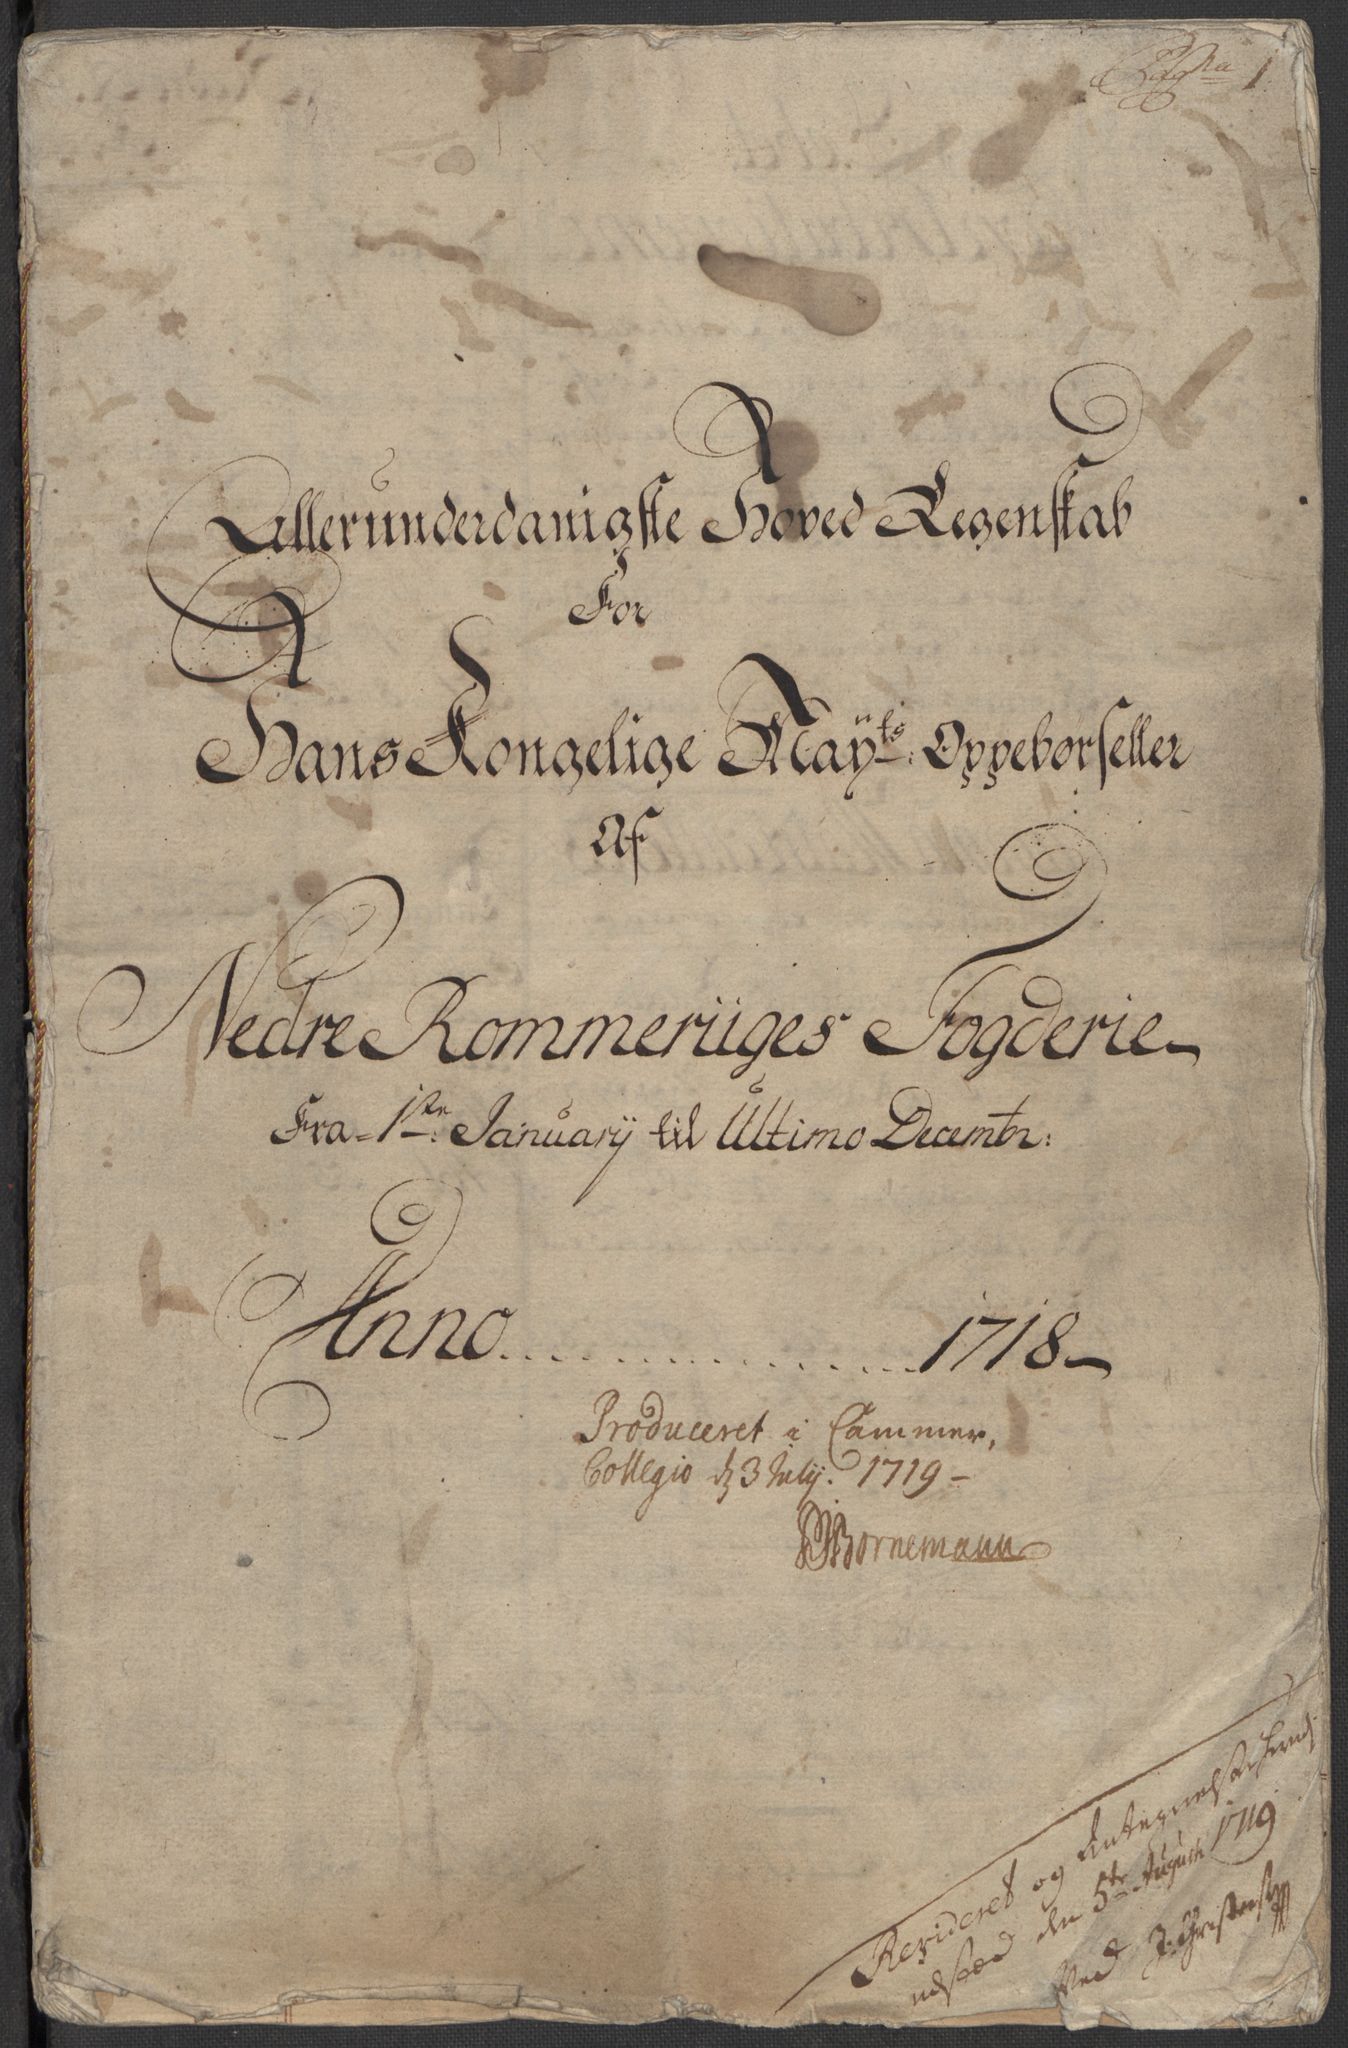 Pagina 1
Allerunderdanigste Hoved Regenskab
For
Hans Kongelige Maÿts: Oppebørseller
Af
Nedre Rommeriiges Fogderie
Fra 1ste: Januarÿ til Ultimo Decembr:
Anno ................ 1718
Produceret i Cammer,
Collegio d 3 Julÿ. 1719
Bornemann
Revideret og Antegnelserne
udsted den 5te August 1719
Ved J: Christens